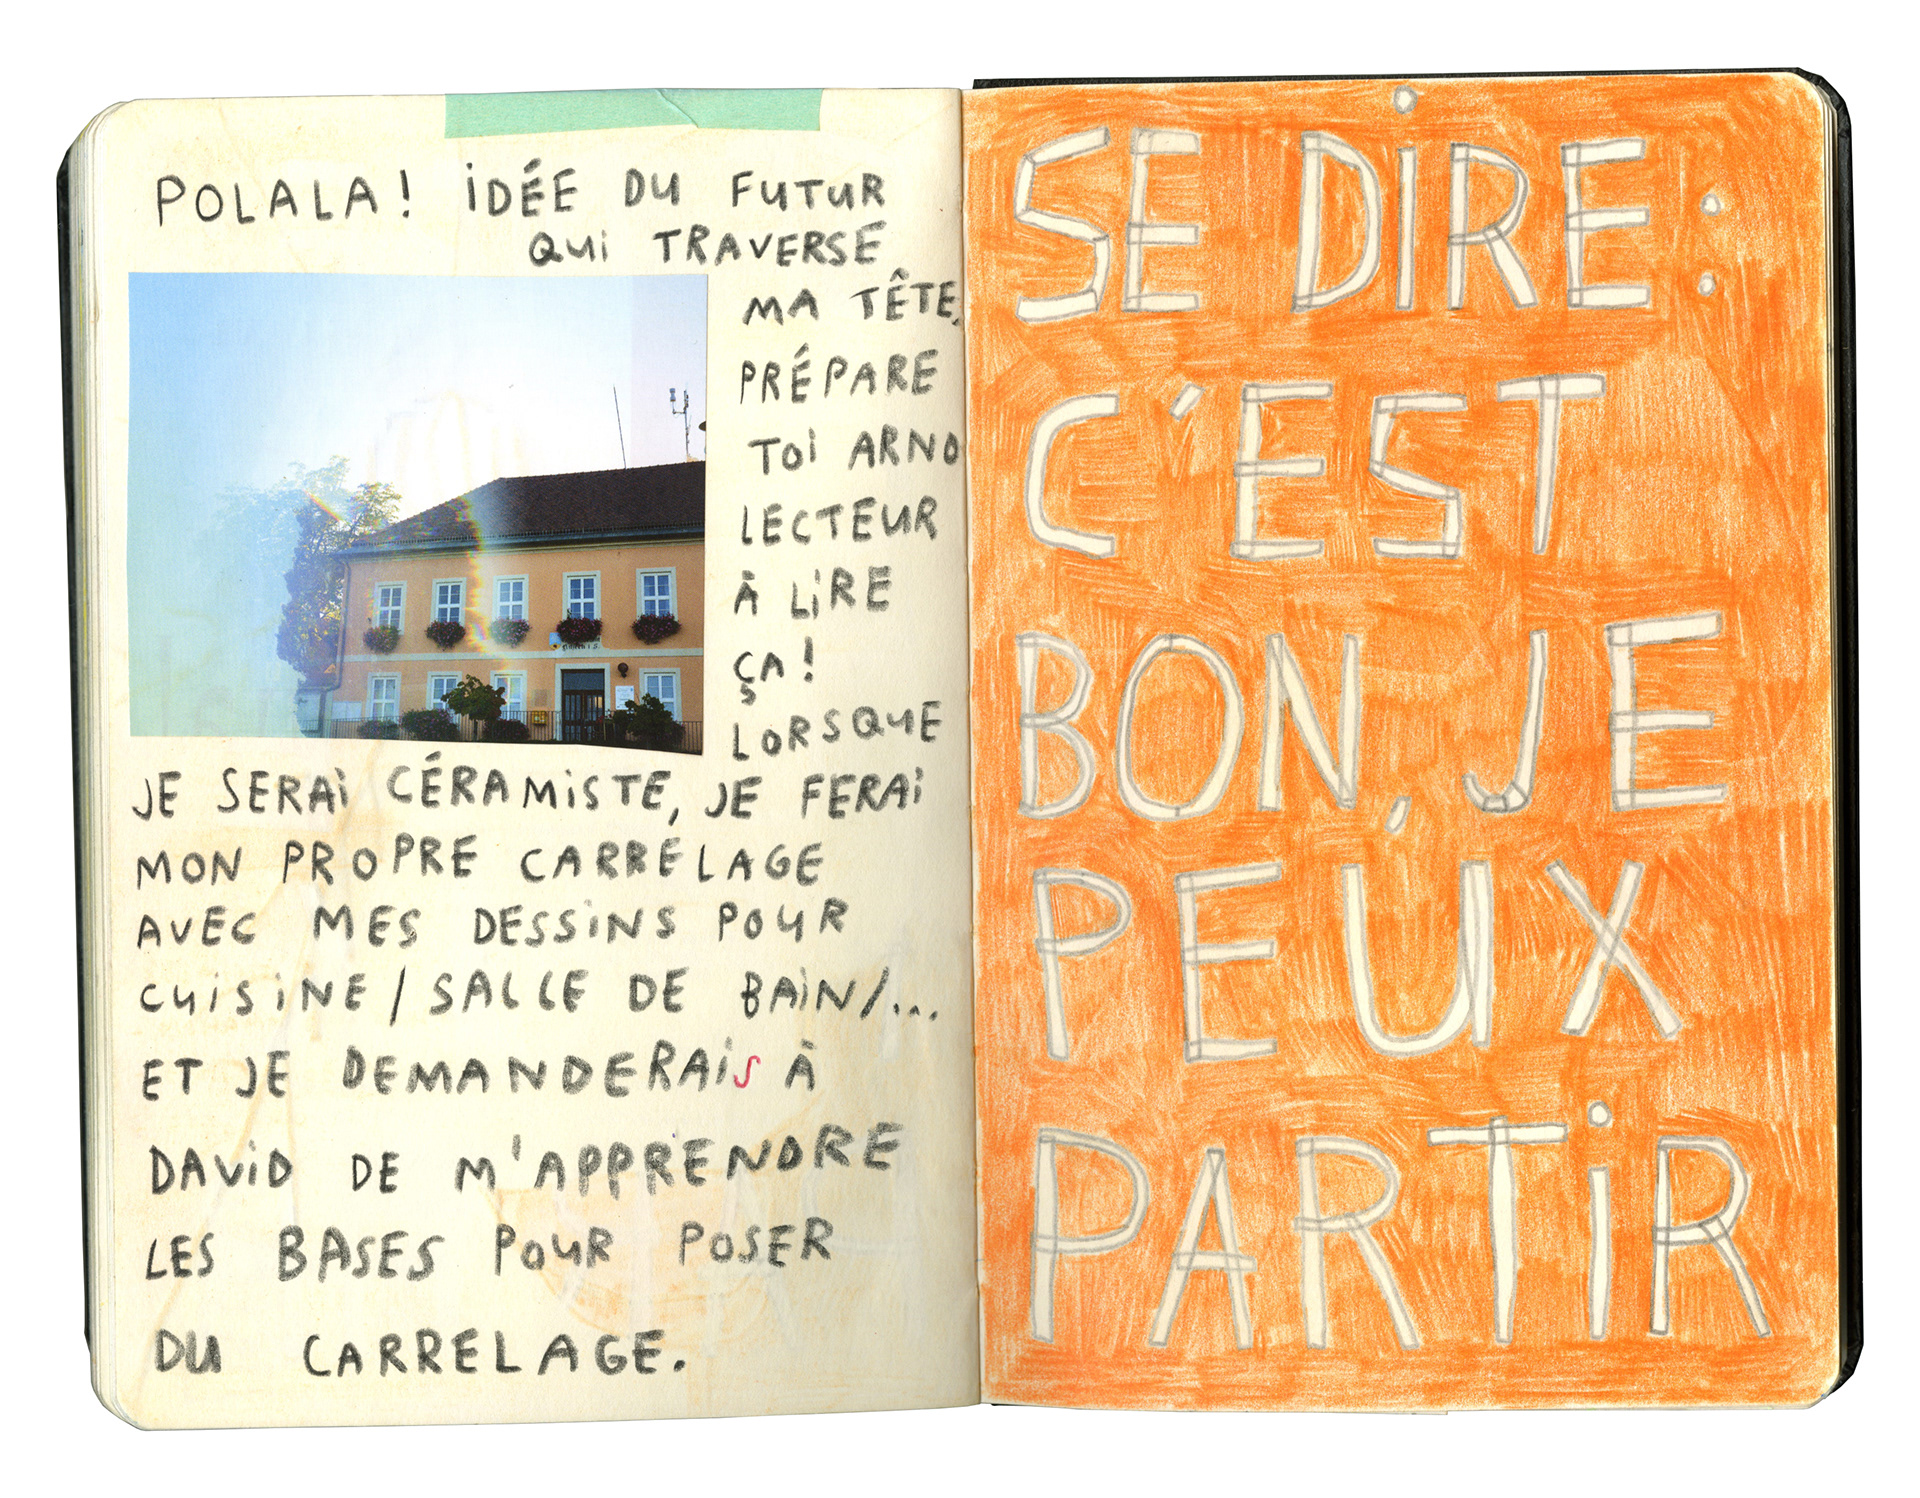 POLALA! IDÉE DU FUTUR
QUI TRAVERSE
MA TÊTE,
PRÉPARE
TOI ARNO
LECTEUR
À LIRE
ÇA!
LORSQUE
JE SERAI CÉRAMISTE, JE FERAI
MON PROPRE CARRELAGE
AVEC MES DESSINS POUR
CUISINE / SALLE DE BAIN/...
ET JE DEMANDERAIS À
DAVID DE M'APPRENDRE
LES BASES POUR POSER
DU CARRELAGE.
SE DIRE:
C'EST
BON, JE
PEUX
PARTIR